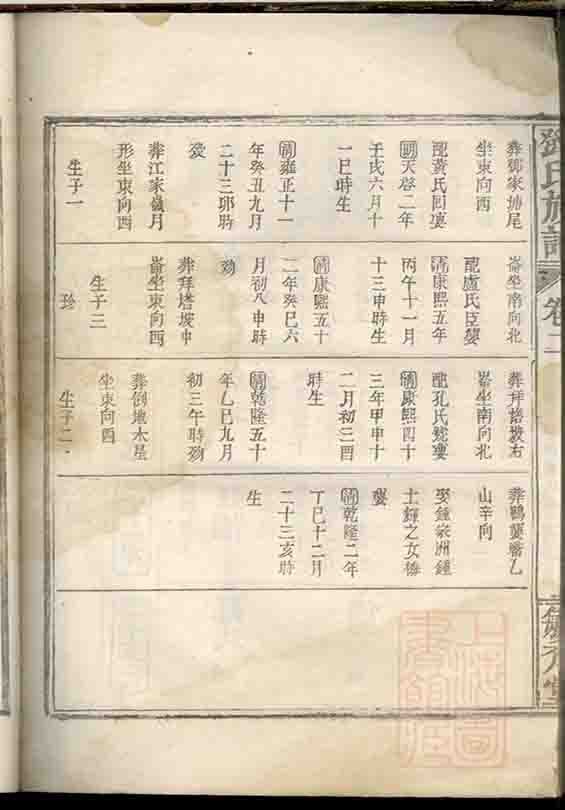 葬鄧家塘尾
坐東向西
配黃氏回婆
明天啓二年
壬戌六月十
一巳時生
清雍正十一
年癸丑九月
二十三卯時
葬江家嶺月
形坐東向西
生子一
崙坐南向北
配盧氏臣嬰
清康熙五年
丙午十一月
十三申時生
清康熙五十
二年癸巳六
月初八申時
歿
葬拜塔坡中
崙坐東向西
生子三
珍
葬拜塔坡右
崙坐南向北
配孔氏
清康熙四十
三年甲申十
二月初三酉
時生
清乾隆五十
年乙巳九月
初三午時歿
葬倒地木星
坐東向西
生子二
乙
山辛向
娶鍾家洲鍾
士輝之女
清乾隆二年
丁巳十二月
二十三亥時
生
鄧氏族譜
卷二
上海圖
書館藏